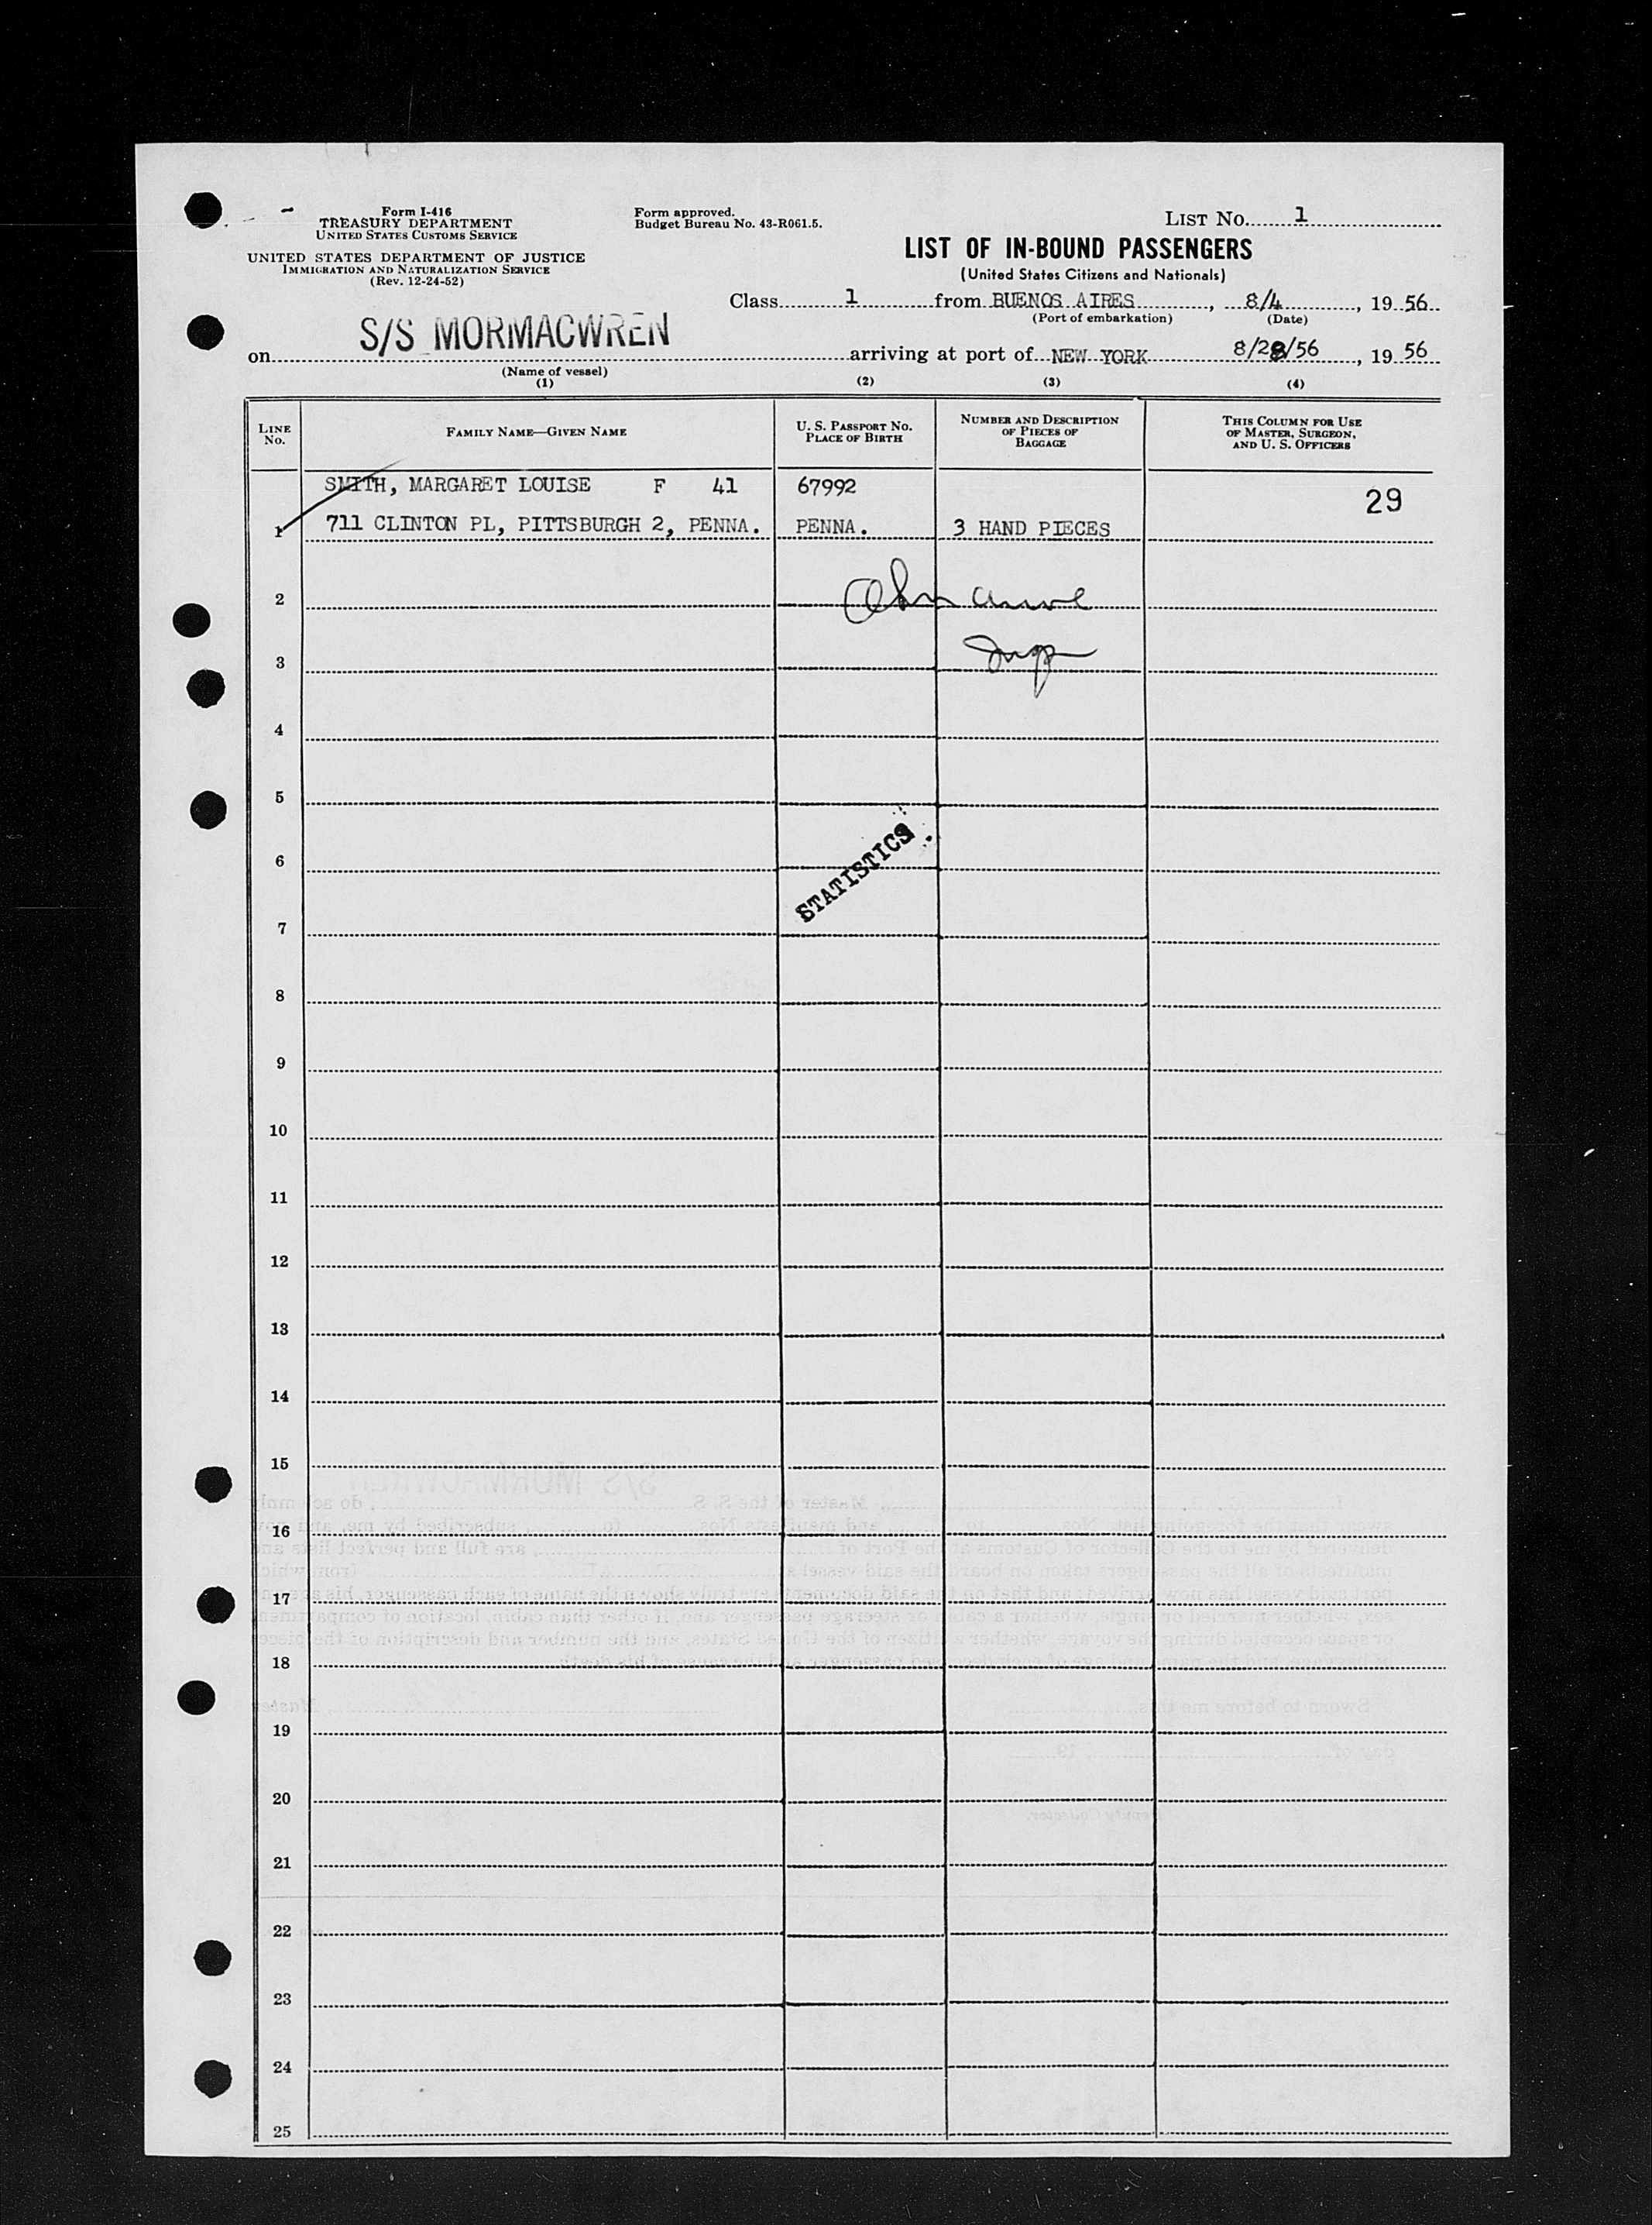 Form I-416
TREASURY DEPARTMENT
UNITED STATES CUSTOMS SERVICE
UNITED STATES DEPARTMENT OF JUSTICE
IMMIGRATION AND NATURALIZATION SERVICE
(Rev. 12-24-52)
Form approved.
Budget Bureau No. 43-R061.5.
LIST NO. 1
LIST OF IN-BOUND PASSENGERS
(United States Citizens and Nationals)
Class 1 from BUENOS AIRES, 8/4, 19 56
(Port of embarkation) (Date)
on S/S MORMACWREN arriving at port of NEW YORK 8/28/56, 19 56
(Name of vessel)
(1) (2) (3) (4)
LINE No. FAMILY NAME—GIVEN NAME U. S. PASSPORT NO. PLACE OF BIRTH NUMBER AND DESCRIPTION OF PIECES OF BAGGAGE THIS COLUMN FOR USE OF MASTER, SURGEON, AND U. S. OFFICERS
SMITH, MARGARET LOUISE F 41 67992 29
1 711 CLINTON PL, PITTSBURGH 2, PENNA. PENNA. 3 HAND PIECES
2
3
4
5
6
STATISTICS
7
8
9
10
11
12
13
14
15
16
17
18
19
20
21
22
23
24
25